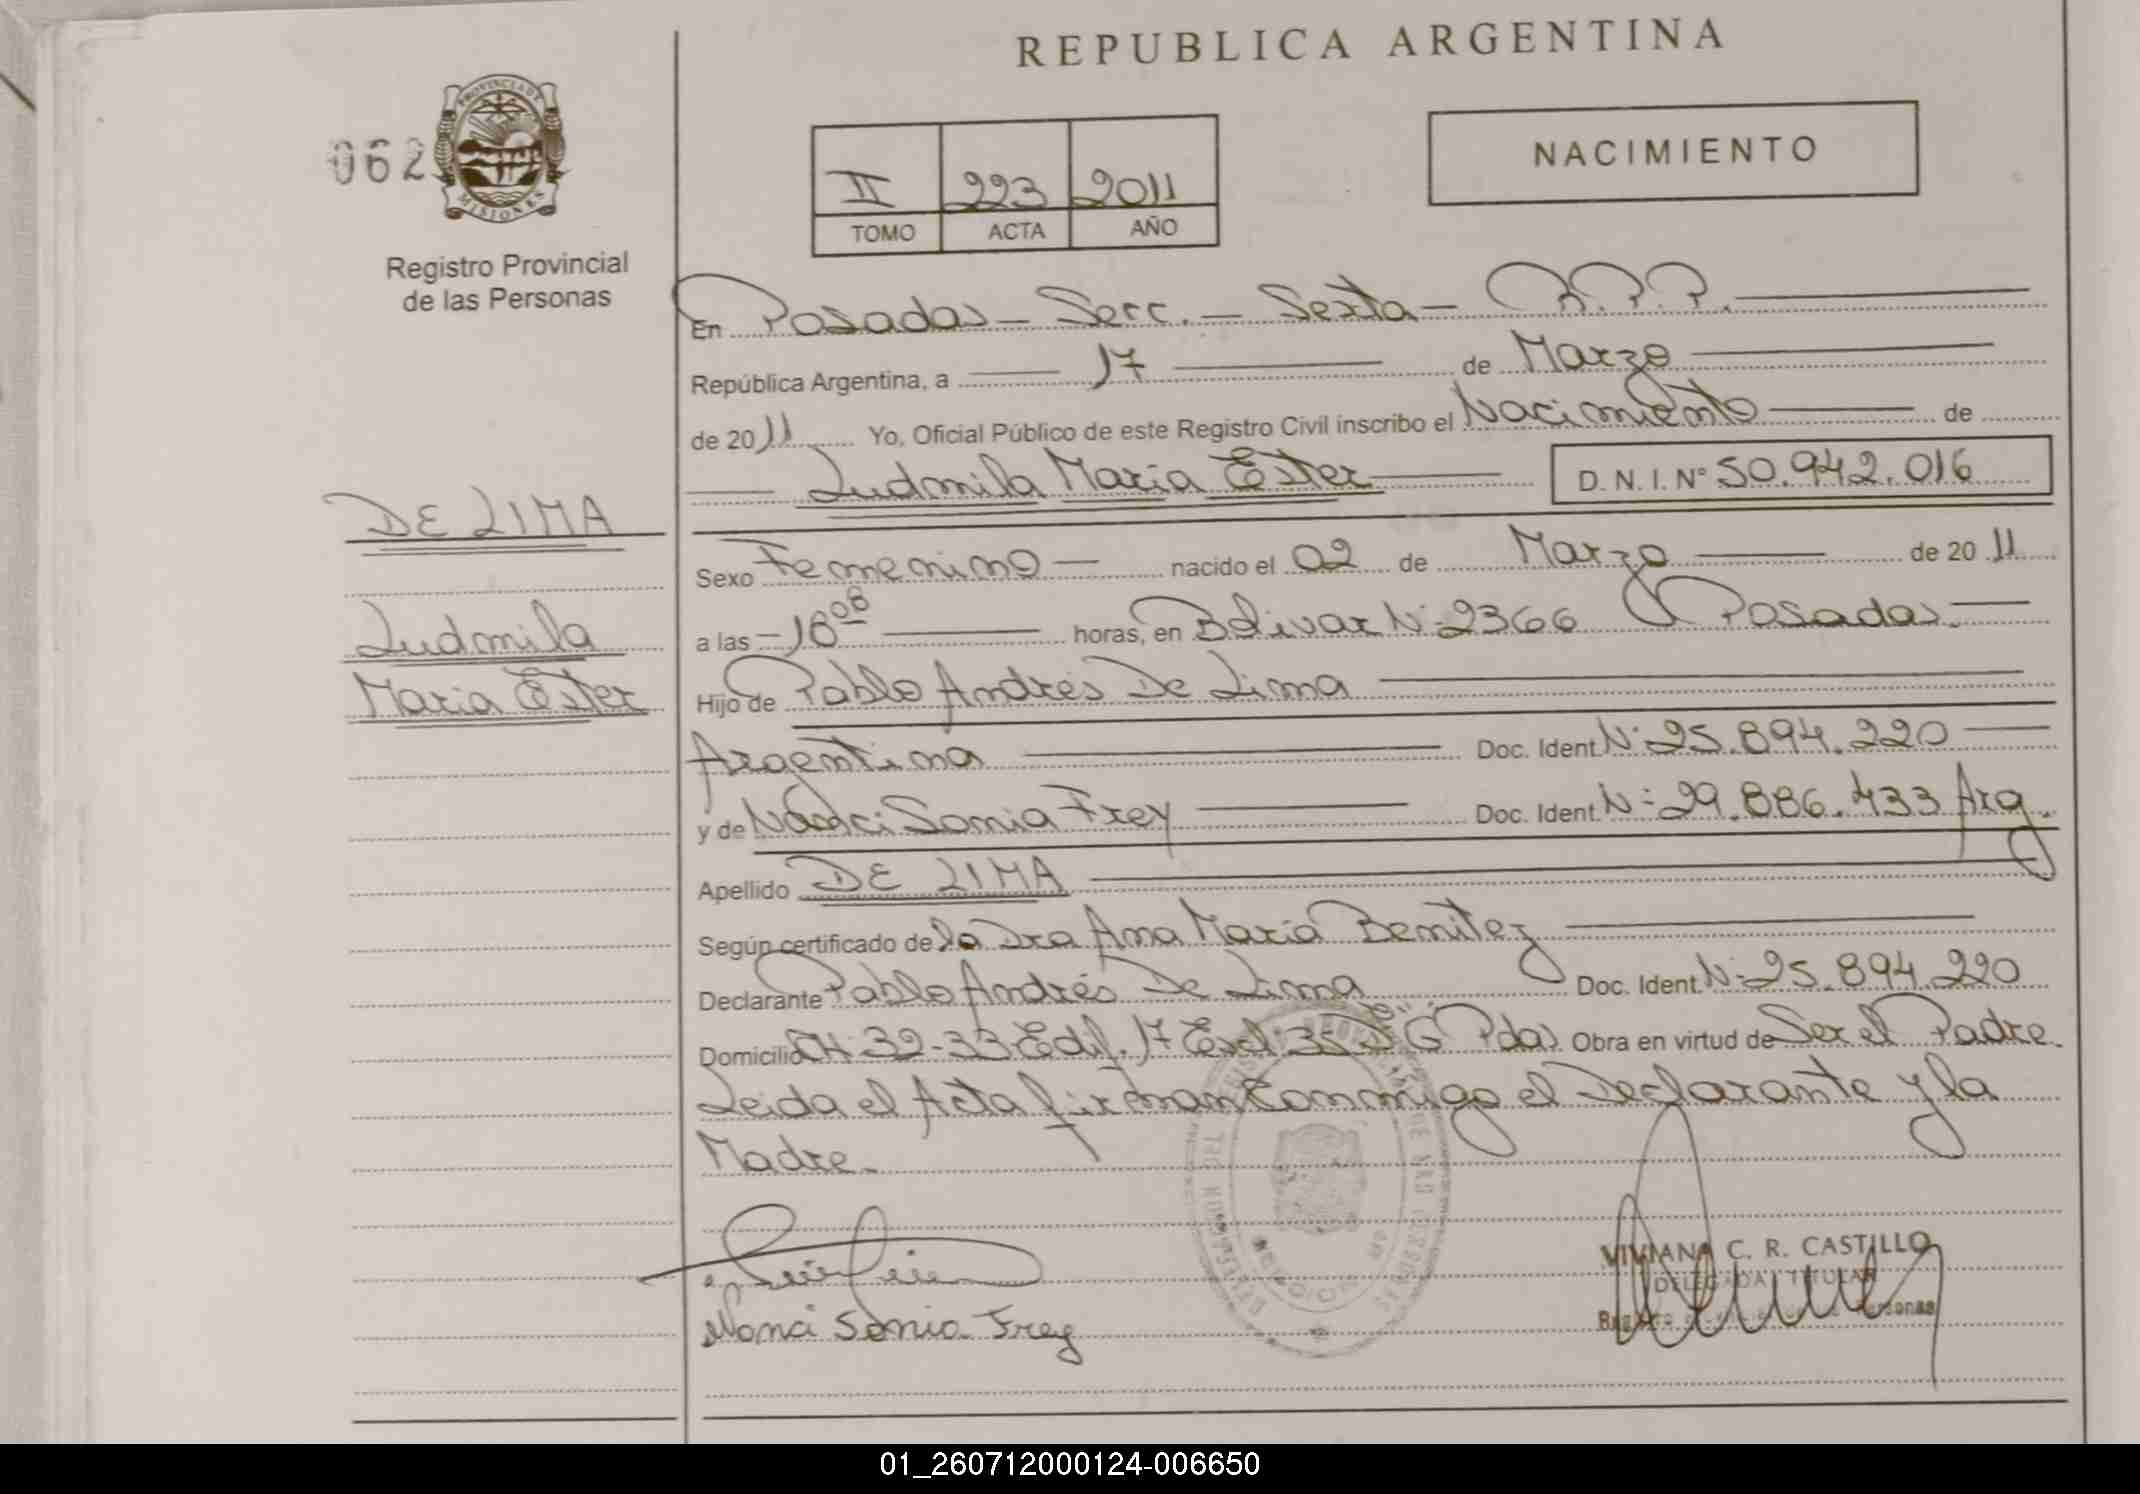 REPUBLICA ARGENTINA
062
PROVINCIA DE
MISIONES
Registro Provincial
de las Personas
II 223 2011
TOMO ACTA AÑO
NACIMIENTO
En Posadas - Secc. - Sexta - R.P.P.
República Argentina, a 17 de Marzo
de 2011 Yo, Oficial Público de este Registro Civil inscribo el Nacimiento de
Ludmila Maria Ester D. N. I. Nº 50.942.016
DE LIMA
Ludmila
Maria Ester
Sexo Femenino nacido el 02 de Marzo de 2011
a las - 18 08 horas, en Bolivar Nº 2366 Posadas.
Hijo de Pablo Andrés De Lima
Argentina Doc. Ident. Nº 25.894.220
y de Sonia Frey Doc. Ident. Nº 29.886.433 Arg.
Apellido DE LIMA
Según certificado de la Dra Ana María Benitez
Declarante Pablo Andrés De Lima Doc. Ident. Nº 25.894.220
Domicilio CH. 32-33 Edif. 17 Esc. G Pdas. Obra en virtud de Ser el Padre.
Leida el Acta firman Conmigo el Declarante y la
Madre.
VIVIANA C. R. CASTILLO
DELEGADA TITULAR
Personas
Nanci Sonia Frey
01_260712000124-006650